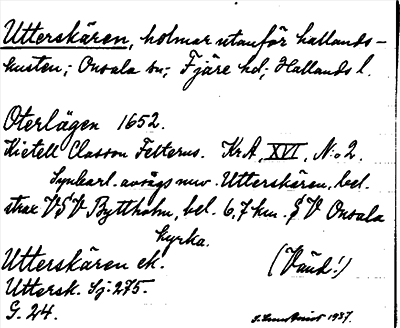 Utterskären, holmar utanför hallands-
kusten; Onsala sn; Fjäre hd, Hallands l.
Oterlägen 1652.
Kietell Classon Felterus. KrA, XVI, N:o 2.
Synbarl. avsågs nuv. Utterskären, bel.
strax VSV Byttholm, bel. 6,7 km. SV Onsala
kyrka.
Utterskären ek.
(Vänd!)
Uttersk. Sj: 275.
G. 24.
1937.